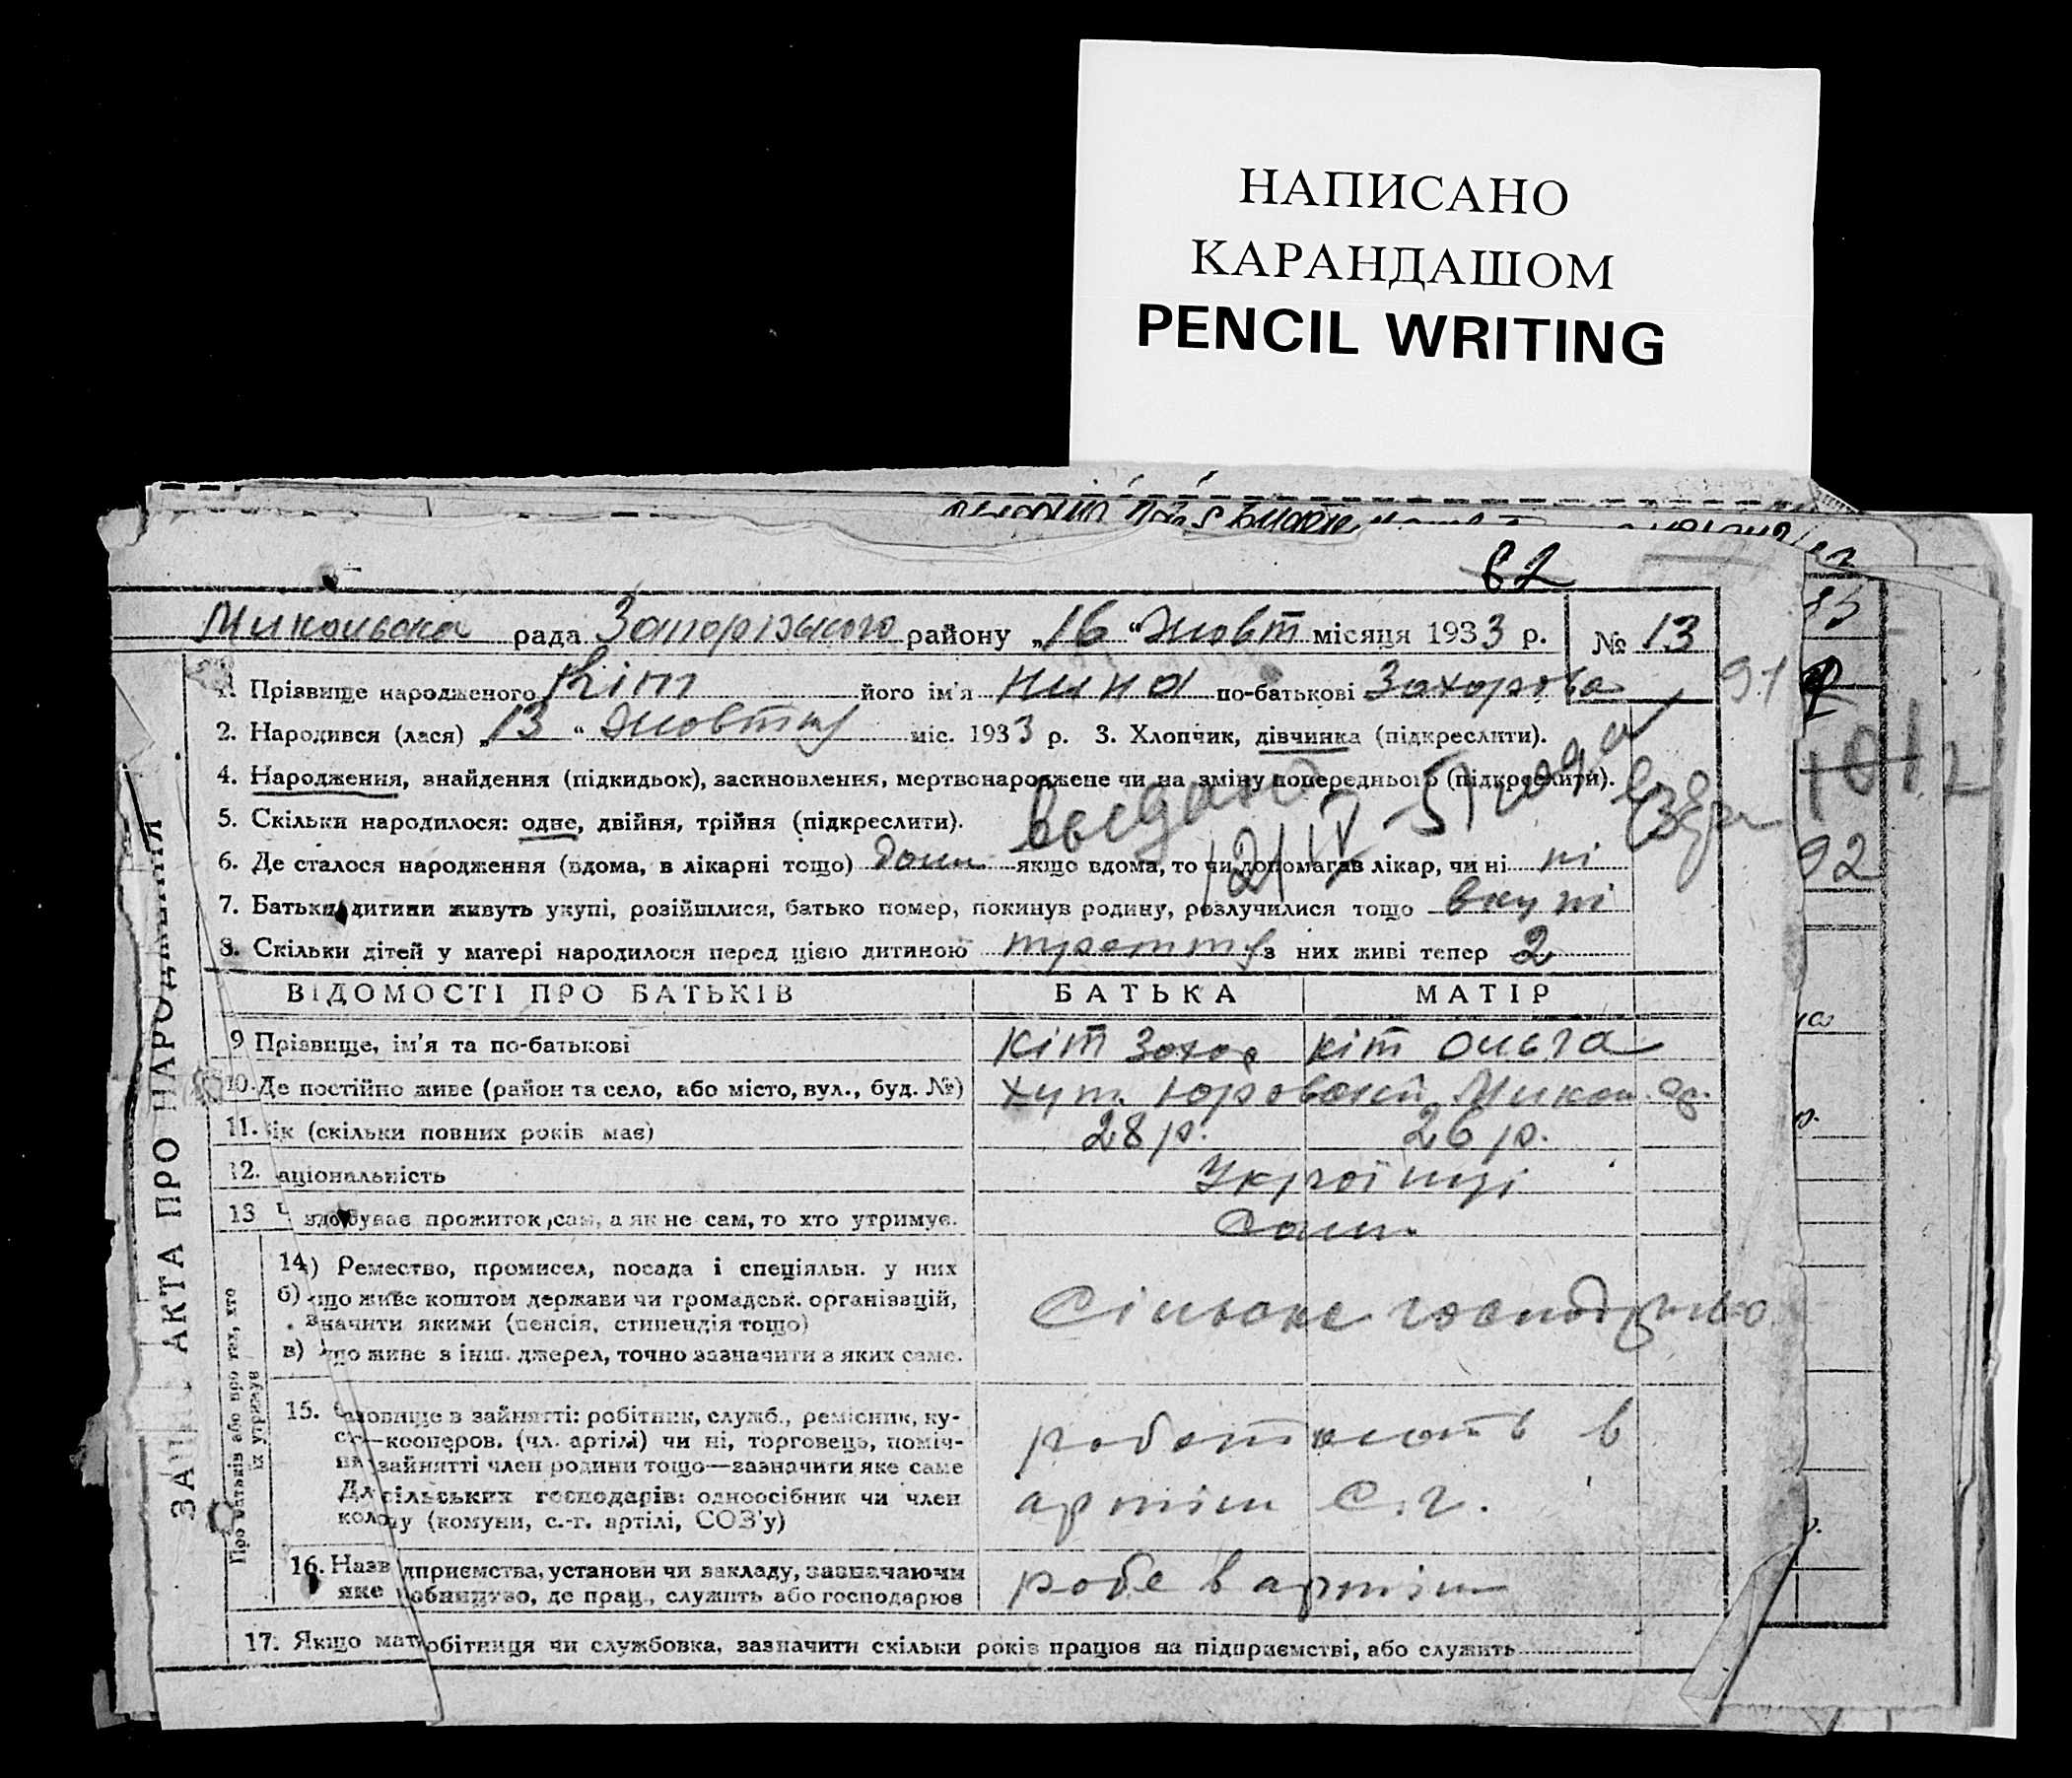 НАПИСАНО
КАРАНДАШОМ
PENCIL WRITING
62
Микольська рада Запорізького району „16“ Жовт місяця 1933 р. № 13
1. Прізвище народженого Кіт його ім'я Нина по-батькові Захорова
91
2. Народився (лася) „13“ Жовтня міс. 1933 р. 3. Хлопчик, дівчинка (підкреслити).
4. Народження, знайдення (підкидьок), засиновлення, мертвонароджене чи на зміну попереднього (підкреслити).
5. Скільки народилося: одне, двійня, трійня (підкреслити).
121 IV 51 года
1012
92
6. Де сталося народження (вдома, в лікарні тощо) дома якщо вдома, то чи допомагав лікар, чи ні ні
7. Батьки дитини живуть укупі, розійшлися, батько помер, покинув родину, розлучилися тощо вкупі
8. Скільки дітей у матері народилося перед цією дитиною з них живі тепер 2
ВІДОМОСТІ ПРО БАТЬКІВ БАТЬКА МАТІР
9 Прізвище, ім'я та по-батькові Кіт Захор Кіт Ольга
10. Де постійно живе (район та село, або місто, вул., буд. №) хут. Микол.
11. ік (скільки повних років має) 28 р. 26 р.
12. аціональність Українці
13 Ч здобуває прожиток, сам, а як не сам, то хто утримує. Сами
ЗАПИС АКТА ПРО НАРОДЖЕННЯ
Про батьків або про тих, хто їх утримує
14) Ремество, промисел, посада і спеціяльн. у них
б) що живе коштом держави чи громадськ. організацій,
значити якими (пенсія, стипендія тощо)
в) що живе з інш. джерел, точно зазначити з яких саме.
Сільське господарство
15. тановище в зайнятті: робітник, служб., ремісник, ку-
ст—кооперов. (чл. артілі) чи ні, торговець, поміч-
зайнятті член родини тощо—зазначити яке саме
Для сільських господарів: одноосібник чи член
колгоу (комуни, с.-г. артілі, СОЗ'у)
работають в
артіли С.г.
16. Назв дприємства, установи чи закладу, зазначаючи
яке обництво, де прац., служить або господарює
робе в артіли
17. Якщо мат обітниця чи службовка, зазначити скільки років працює на підприємстві, або служить